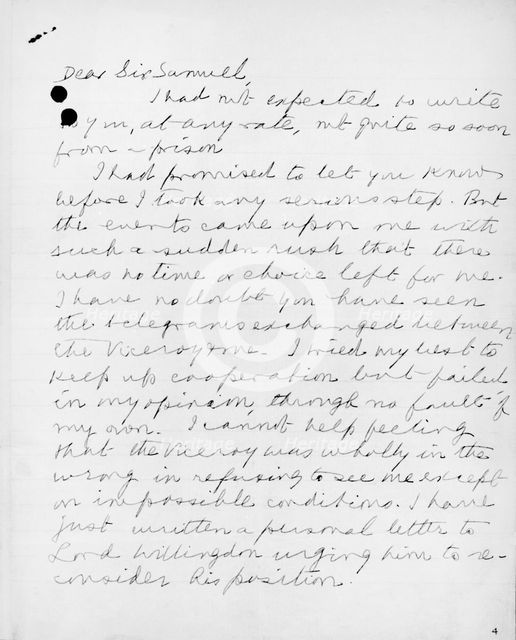 Dear Sir Samuel,
I had not expected to write
to you, at any rate, not quite so soon
from a prison
I had promised to let you know
before I took any serious step. But
the events came upon me with
such a sudden rush that there
was no time or choice left for me.
I have no doubt you have seen
the telegrams exchanged between
the Viceroy & me. I tried my best to
keep up cooperation but failed
in my opinion, through no fault of
my own. I cannot help feeling
that the Viceroy was wholly in the
wrong in refusing to see me except
on impossible conditions. I have
just written a personal letter to
Lord Willingdon urging him to re-
consider his position.
4
Heritage
Heritage
Heritage
Heritage